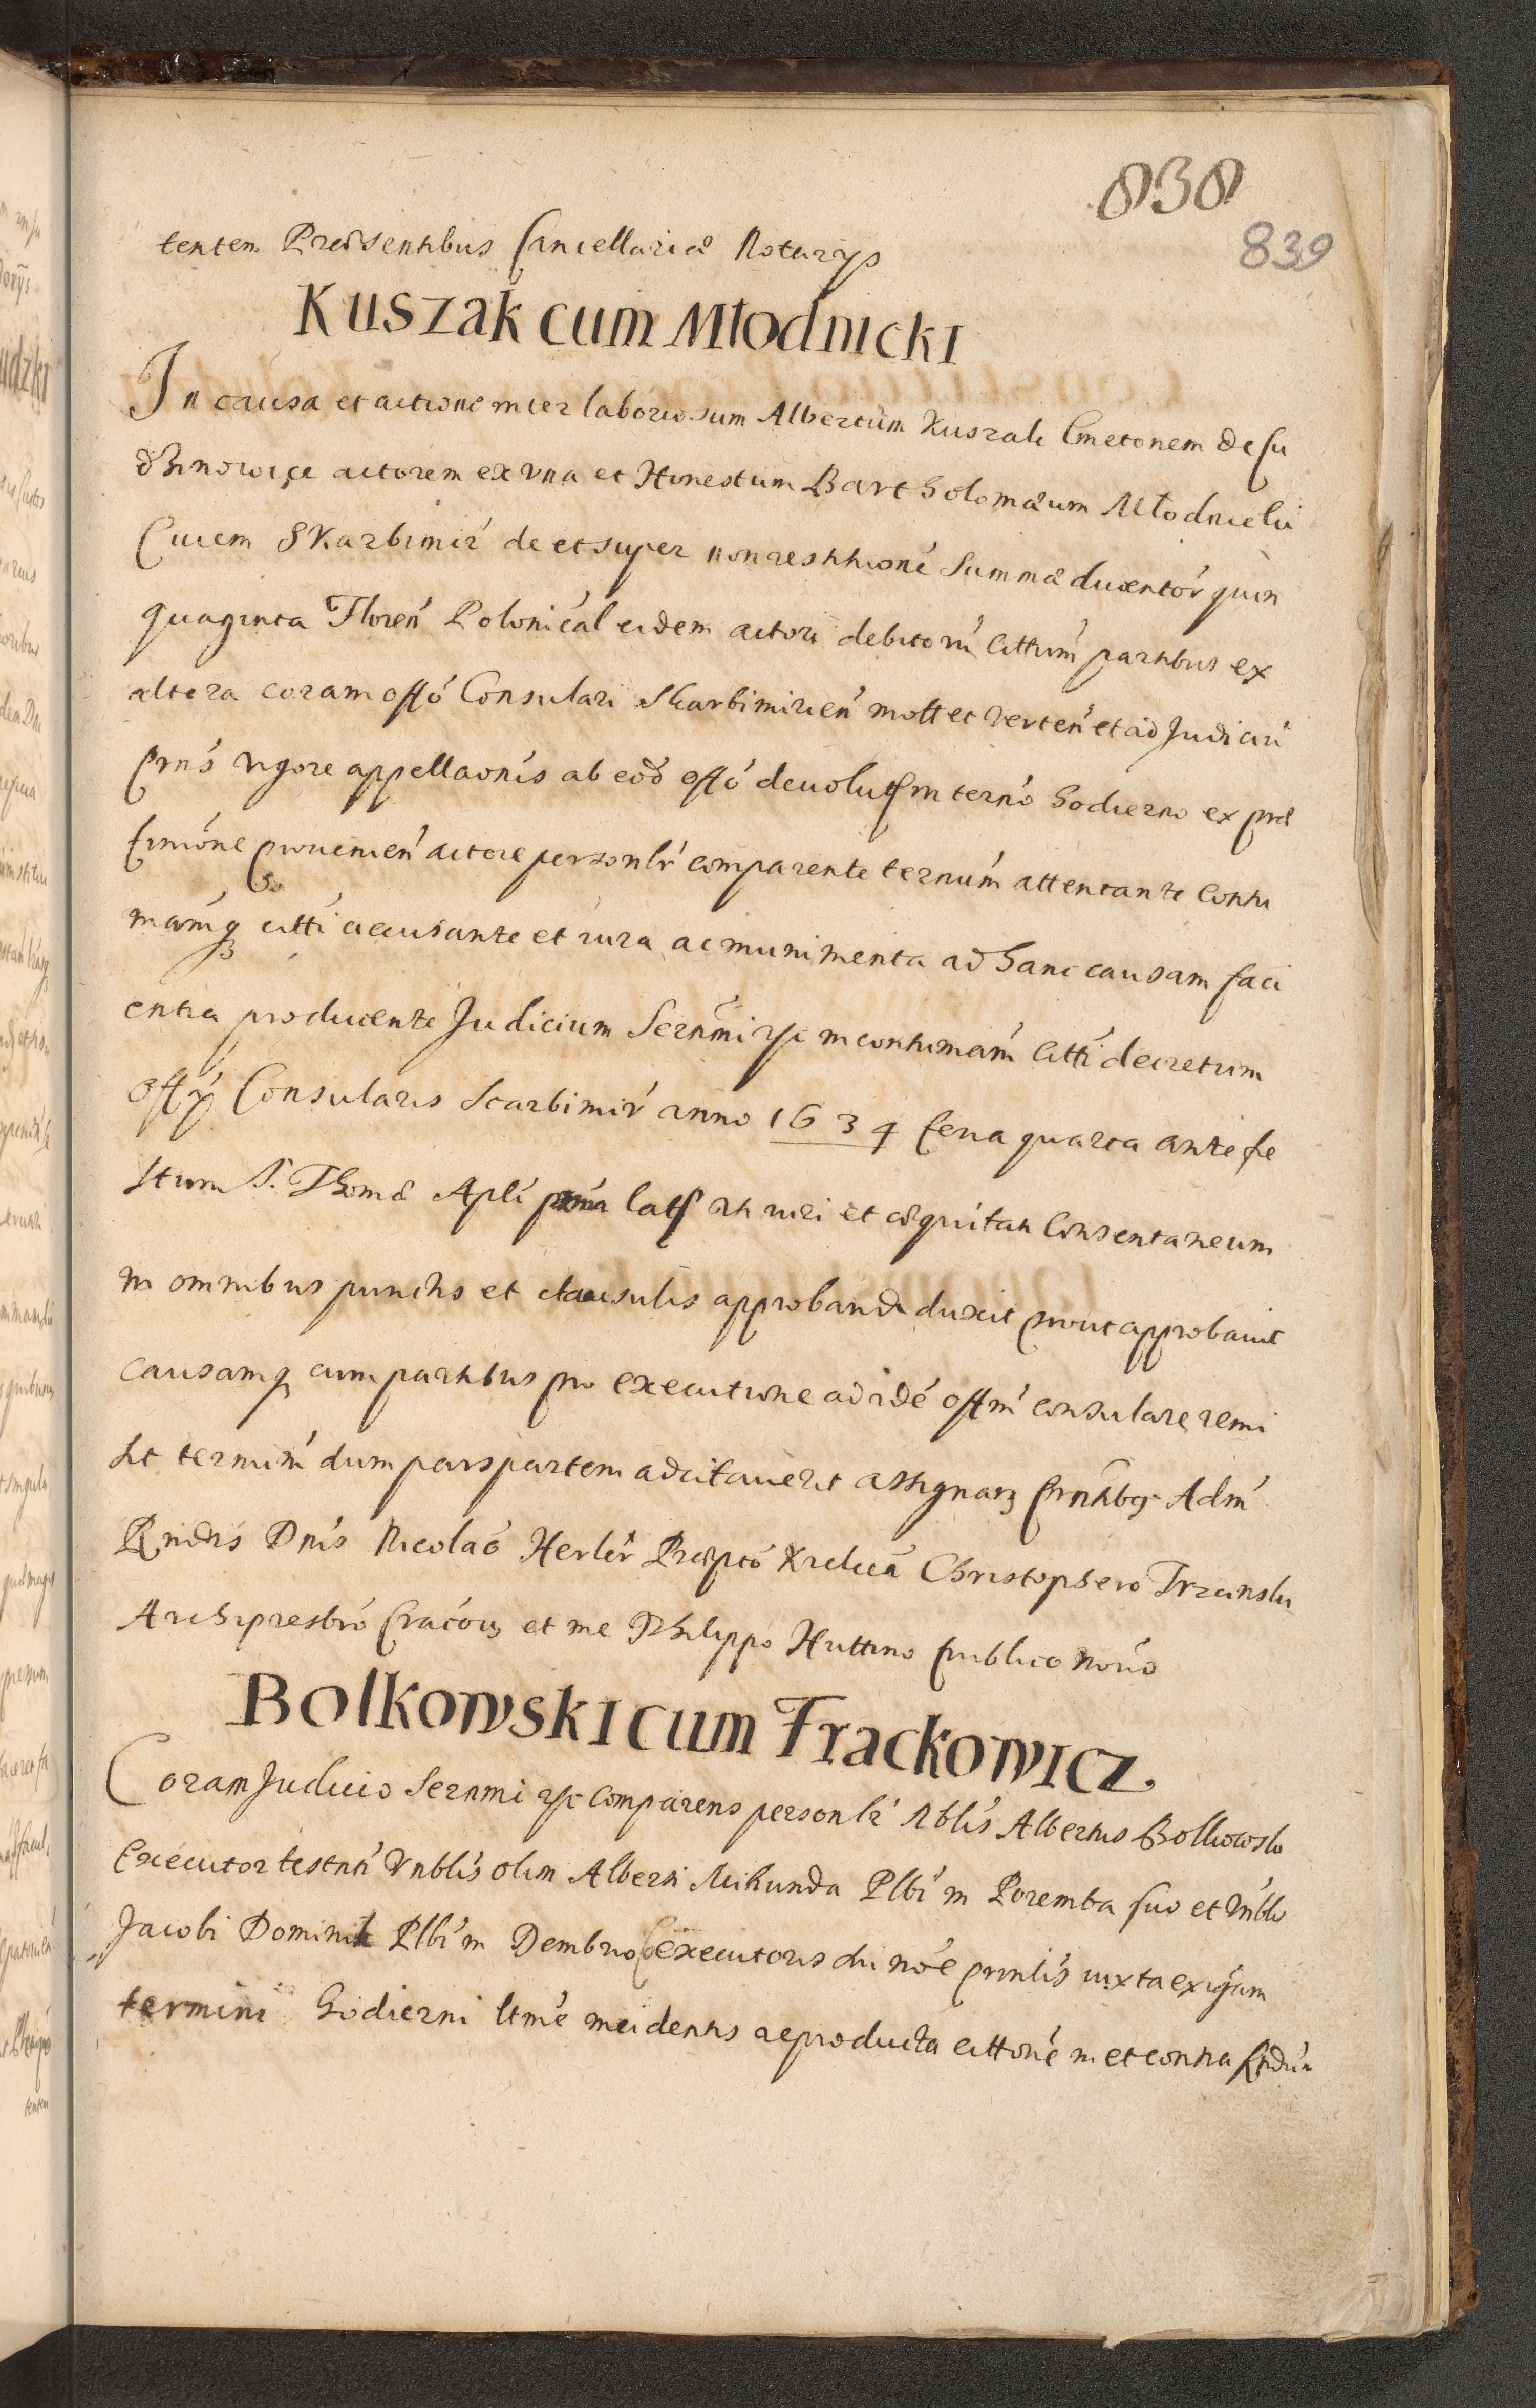 838
839
tentem Præsentibus Cancellariæ Notarys
Kuszak cum Młodnicki
In causa et actione inter laboriosum Albertum Kuszak Cmetonem de Su
dzinowice actorem ex vna et Honestum Bartholomæum Młodnicki
Ciuem Skarbimir de et super nonrestitione summæ ducentor quin
quaginta Floren Polonical eidem actori debitorum Cittum partibus ex
altera coram offo Consulari Skarbimirien mott et verten et ad Judiciu
prns vigore appellaonis ab eod offo deuolut in terno hodierno ex præ
finione prouenien actore personlr comparente ternum attentante Contu
mamq citti accusante et iura ac munimenta ad hanc causam faci
entia producente Judicium Sernmi in contumam Citti decretum
offy Consularis Scarbimir anno 1634 feria quarta ante fe
stum S. Thomæ Apli lat iuri et æquitati Consentaneum
in omnibus punctis et clausulis approband duxit prout approbauit
causamq cum partibus pro executione ad idé offm consulare remi
sit terminum dum pars partem adcitauerit assignans prntibq Adm
Rndis Dnis Nicolao Herler Præpto Kielcen Christophero Trzinski
Archipresbro Cracou et me Philippo Huttino publico norio
Bolkowski cum Frackowicz
Coram Judicio Sernmi comparens personlr Nblis Albertus Bolkowski
Executor testnti Vnblis olim Alberti Mikunda Plbi in Poremba suo et Vnblis
Jacobi Dominik Plbi in Dembno Coexecutoris sui noe prnlis iuxta exigam
termini hodierni ltme incidentis reproducta cittone in et contra